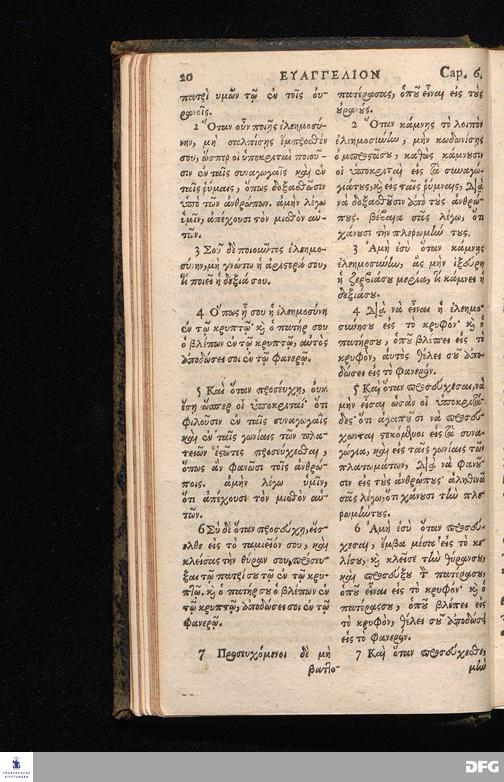 20
ΕΥΑΓΓΕΛΙΟΝ
Cap. 6.
πατρὶ ὑμῶν τῷ ἐν τοῖς οὐ-
ρανοῖς.
2 Ὅταν οὖν ποιῇς ἐλεημοσύ-
νην, μὴ σαλπίσῃς ἔμπροσθέν
σου, ὥσπερ οἱ ὑποκριταὶ ποιοῦ-
σιν ἐν ταῖς συναγωγαῖς καὶ ἐν
ταῖς ῥύμαις, ὅπως δοξασθῶσιν
ὑπὸ τῶν ἀνθρώπων. ἀμὴν λέγω
ὑμῖν, ἀπέχουσι τὸν μισθὸν αὑ-
τῶν.
3 Σοῦ δὲ ποιοῦντος ἐλεημο-
σύνην, μὴ γνώτω ἡ ἀριστερά σου,
τί ποιεῖ ἡ δεξιά σου.
4 Ὅπως ᾖ σου ἡ ἐλεημοσύνη
ἐν τῷ κρυπτῷ· καὶ ὁ πατήρ σου
ὁ βλέπων ἐν τῷ κρυπτῷ, αὐτὸς
ἀποδώσει σοι ἐν τῷ φανερῷ.
5 Καὶ ὅταν προσεύχῃ, οὐκ
ἔσῃ ὥσπερ οἱ ὑποκριταί· ὅτι
φιλοῦσιν ἐν ταῖς συναγωγαῖς
καὶ ἐν ταῖς γωνίαις τῶν πλα-
τειῶν ἑστῶτες προσεύχεσθαι,
ὅπως ἂν φανῶσι τοῖς ἀνθρώ-
ποις. ἀμὴν λέγω ὑμῖν,
ὅτι ἀπέχουσι τὸν μισθὸν αὑ-
τῶν.
6 Σὺ δὲ ὅταν προσεύχῃ, εἴσ-
ελθε εἰς τὸ ταμιεῖόν σου, καὶ
κλείσας τὴν θύραν σου, πρόσευ-
ξαι τῷ πατρί σου τῷ ἐν τῷ κρυ-
πτῷ. καὶ ὁ πατήρ σου ὁ βλέπων ἐν
τῷ κρυπτῷ, ἀποδώσει σοι ἐν τῷ
φανερῷ.
7 Προσευχόμενοι δὲ μὴ
βαττο-
πατέρασας, ὁποῦ εἶναι εἰς τοὺς
οὐρανούς.
2 Ὅταν κάμνῃς τὸ λοιπὸν
ἐλεημοσύνην, μὴν κωδωνίσῃς
ὀμπροστά σου, καθὼς κάμνουσιν
οἱ ὑποκριταὶ εἰς τὰ συναγω-
γιάτους, καὶ εἰς ταῖς ῥύμναις, διὰ
νὰ δοξασθοῦσιν ἀπὸ τοὺς ἀνθρώ-
πους. βέβαια σᾶς λέγω, ὅτι
χάνουσι τὴν πλερωμήν τους.
3 Ἀμὴ ἐσὺ ὅταν κάμνῃς
ἐλεημοσύνην, ἂς μὴν ἰξεύρῃ
ἡ ζερβιά σου μεριὰ, τί κάμνει ἡ
δεξιά σου.
4 Διὰ νὰ εἶναι ἡ ἐλεημο-
σύνη σου εἰς τὸ κρυφόν· καὶ ὁ
πατήρ σου, ὁποῦ βλέπει εἰς τὸ
κρυφὸν, αὐτὸς θέλει σου ἀπο-
δώσει εἰς τὸ φανερόν.
5 Καὶ ὅταν προσεύχεσαι, νὰ
μὴν εἶσαι ὡσὰν οἱ ὑποκριτά-
δες· ὅτι ἀγαποῦσι νὰ προσεύ-
χωνται στεκόμενοι εἰς τὰ συνα-
γώγια, καὶ εἰς ταῖς γωνίαις τῶν
πλατωμάτων, διὰ νὰ φανοῦ-
σιν εἰς τοὺς ἀνθρώπους· ἀληθινὰ
σᾶς λέγω, ὅτι χάνουσι τὴν πλε-
ρωμήν τους.
6 Ἀμὴ ἐσὺ ὅταν προσεύ-
χεσαι, ἔμβα μέσα εἰς τὸ κε-
λί σου, καὶ κλεῖσε τὴν θύραν σου,
καὶ προσεύξου τὸν πατέρα σου,
ὁποῦ εἶναι εἰς τὸ κρυφόν· καὶ ὁ
πατέρας σου, ὁποῦ βλέπει εἰς
τὸ κρυφὸν, θέλει σου ἀποδώσει
εἰς τὸ φανερόν.
7 Καὶ ὅταν προσεύχεσθε,
μὴν
FRANCKESCHE
STIFTUNGEN
DFG